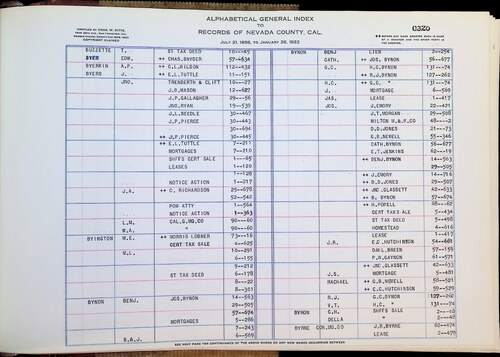 ALPHABETICAL GENERAL INDEX
TO
RECORDS OF NEVADA COUNTY, CAL.
6320
JULY 21, 1856, TO JANUARY 26, 1922
COPYRIGHT CLAIMED
BUZZETTE T, ST TAX DEED 10--45
BYER EDW, ++ CHAS, SNYDER 57--634
BYERKIN A,P, ++ C,L, WILSON 112--432
BYERS J, ++ E,L, TUTTLE 11--151
JNO, TRENBERTH & LIFT 10--27
J,B, MASON 12--627
J,P, GALLAGHER 29--56
JNO, RYAN 19--539
J,L, NEEDLE 30--467
J,P, PIERCE 30--443
30--694
++ J,P, PIERCE 30--445
++ E,L, TUTTLE 7--211
MORTGAGES 7--210
SHFFS CERT SALE 1--65
LEASES 1--120
1--128
NOTICE ACTION 1--217
J,A, ++ C, RICHARDSON 29--678
52--542
POW ATTY 1--564
NOTICE ACTION 1--363
L,M, CAL,G,MG,CO 90--60
M,A, " 90--60
BYINGTON M,E, ++ MORRIS LOBNER 73--16
CERT TAX SALE 4--625
M,L, 10--291
6--155
5--212
ST TAX DEED 6--178
8--22
8--301
BYNON BENJ, JOS, BYNON 14--563
29--505
57--674
MORTGAGES 5--286
7--243
B,A,J, 6--569
BYNON BENJ LIEN 2--254
CATH, ++ JOS, BYNON 56--677
G,C, H,C, BYNON 131--74
++ R,J, BYNON 127--262
H,C, ++ G,C, " 131--74
J, MORTGAGE 6--569
JAS, LEASE 1--417
JOS, J, EMORY 22--421
J,T, MORGAN 29--508
HILTON M & F,CO 48--2
D,D, JONES 21--73
G,B, NEWELL 55--346
CATH, BYNON 56--677
E,T, JENKINS 62--19
++ BENJ, BYNON 14--563
29--505
++ J, EMORY 14--716
++ D,D, JONES 29--507
++ JNO, GLASSETT 42--633
++ B, BYNON 57--674
++ H, POPELL 68--62
CERT TAX SALE 5--434
ST TAX DEED 5--498
HOMESTEAD 4--616
LEASE 1--417
J,R, E,C, HUTCHINSON 54--681
DAN'L BREEN 57--158
P,B, GAYNON 61--571
++ JNO, GLASSETT 42--633
J,S, MORTGAGE 5--481
RACHAEL ++ G,B, NOBELL 58--521
++ E,C, HUTCHINSON 59--529
R,J, G,C, BYNON 127--262
V,T, H,C, " 131--74
BYRON G,H, SHFFS SALE 2--48
DELLA " 2--48
BYRNE CON, MG, CO J,R, BYRNE 62--674
LEASE 1--479